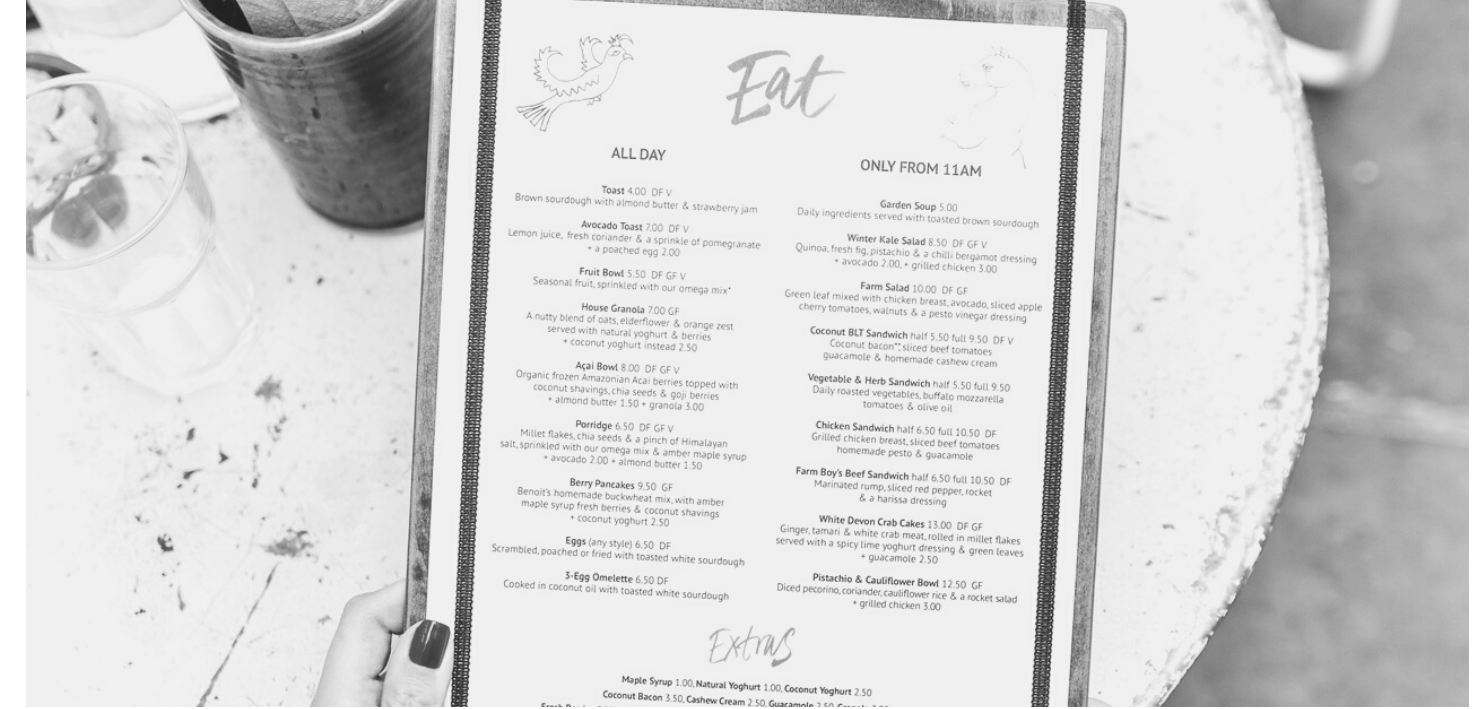 Eat
ALL DAY
Toast 4.00 DF V
Brown sourdough with almond butter & strawberry jam
Avocado Toast 7.00 DF V
Lemon juice, fresh coriander & a sprinkle of pomegranate
+ a poached egg 2.00
Fruit Bowl 5.50 DF GF V
Seasonal fruit, sprinkled with our omega mix*
House Granola 7.00 GF
A nutty blend of oats, elderflower & orange zest
served with natural yoghurt & berries
+ coconut yoghurt instead 2.50
Açai Bowl 8.00 DF GF V
Organic frozen Amazonian Acai berries topped with
coconut shavings, chia seeds & goji berries
+ almond butter 1.50 + granola 3.00
Porridge 6.50 DF GF V
Millet flakes, chia seeds & a pinch of Himalayan
salt, sprinkled with our omega mix & amber maple syrup
+ avocado 2.00 + almond butter 1.50
Berry Pancakes 9.50 GF
Benoit's homemade buckwheat mix, with amber
maple syrup fresh berries & coconut shavings
+ coconut yoghurt 2.50
Eggs (any style) 6.50 DF
Scrambled, poached or fried with toasted white sourdough
3-Egg Omelette 6.50 DF
Cooked in coconut oil with toasted white sourdough
ONLY FROM 11AM
Garden Soup 5.00
Daily ingredients served with toasted brown sourdough
Winter Kale Salad 8.50 DF GF V
Quinoa, fresh fig, pistachio & a chilli bergamot dressing
+ avocado 2.00, + grilled chicken 3.00
Farm Salad 10.00 DF GF
Green leaf mixed with chicken breast, avocado, sliced apple
cherry tomatoes, walnuts & a pesto vinegar dressing
Coconut BLT Sandwich half 5.50 full 9.50 DF V
Coconut bacon**, sliced beef tomatoes
guacamole & homemade cashew cream
Vegetable & Herb Sandwich half 5.50 full 9.50
Daily roasted vegetables, buffalo mozzarella
tomatoes & olive oil
Chicken Sandwich half 6.50 full 10.50 DF
Grilled chicken breast, sliced beef tomatoes
homemade pesto & guacamole
Farm Boy's Beef Sandwich half 6.50 full 10.50 DF
Marinated rump, sliced red pepper, rocket
& a harissa dressing
White Devon Crab Cakes 13.00 DF GF
Ginger, tamari & white crab meat, rolled in millet flakes
served with a spicy lime yoghurt dressing & green leaves
+ guacamole 2.50
Pistachio & Cauliflower Bowl 12.50 GF
Diced pecorino, coriander, cauliflower rice & a rocket salad
+ grilled chicken 3.00
Extras
Maple Syrup 1.00, Natural Yoghurt 1.00, Coconut Yoghurt 2.50
Coconut Bacon 3.50, Cashew Cream 2.50, Guacamole 2.50,